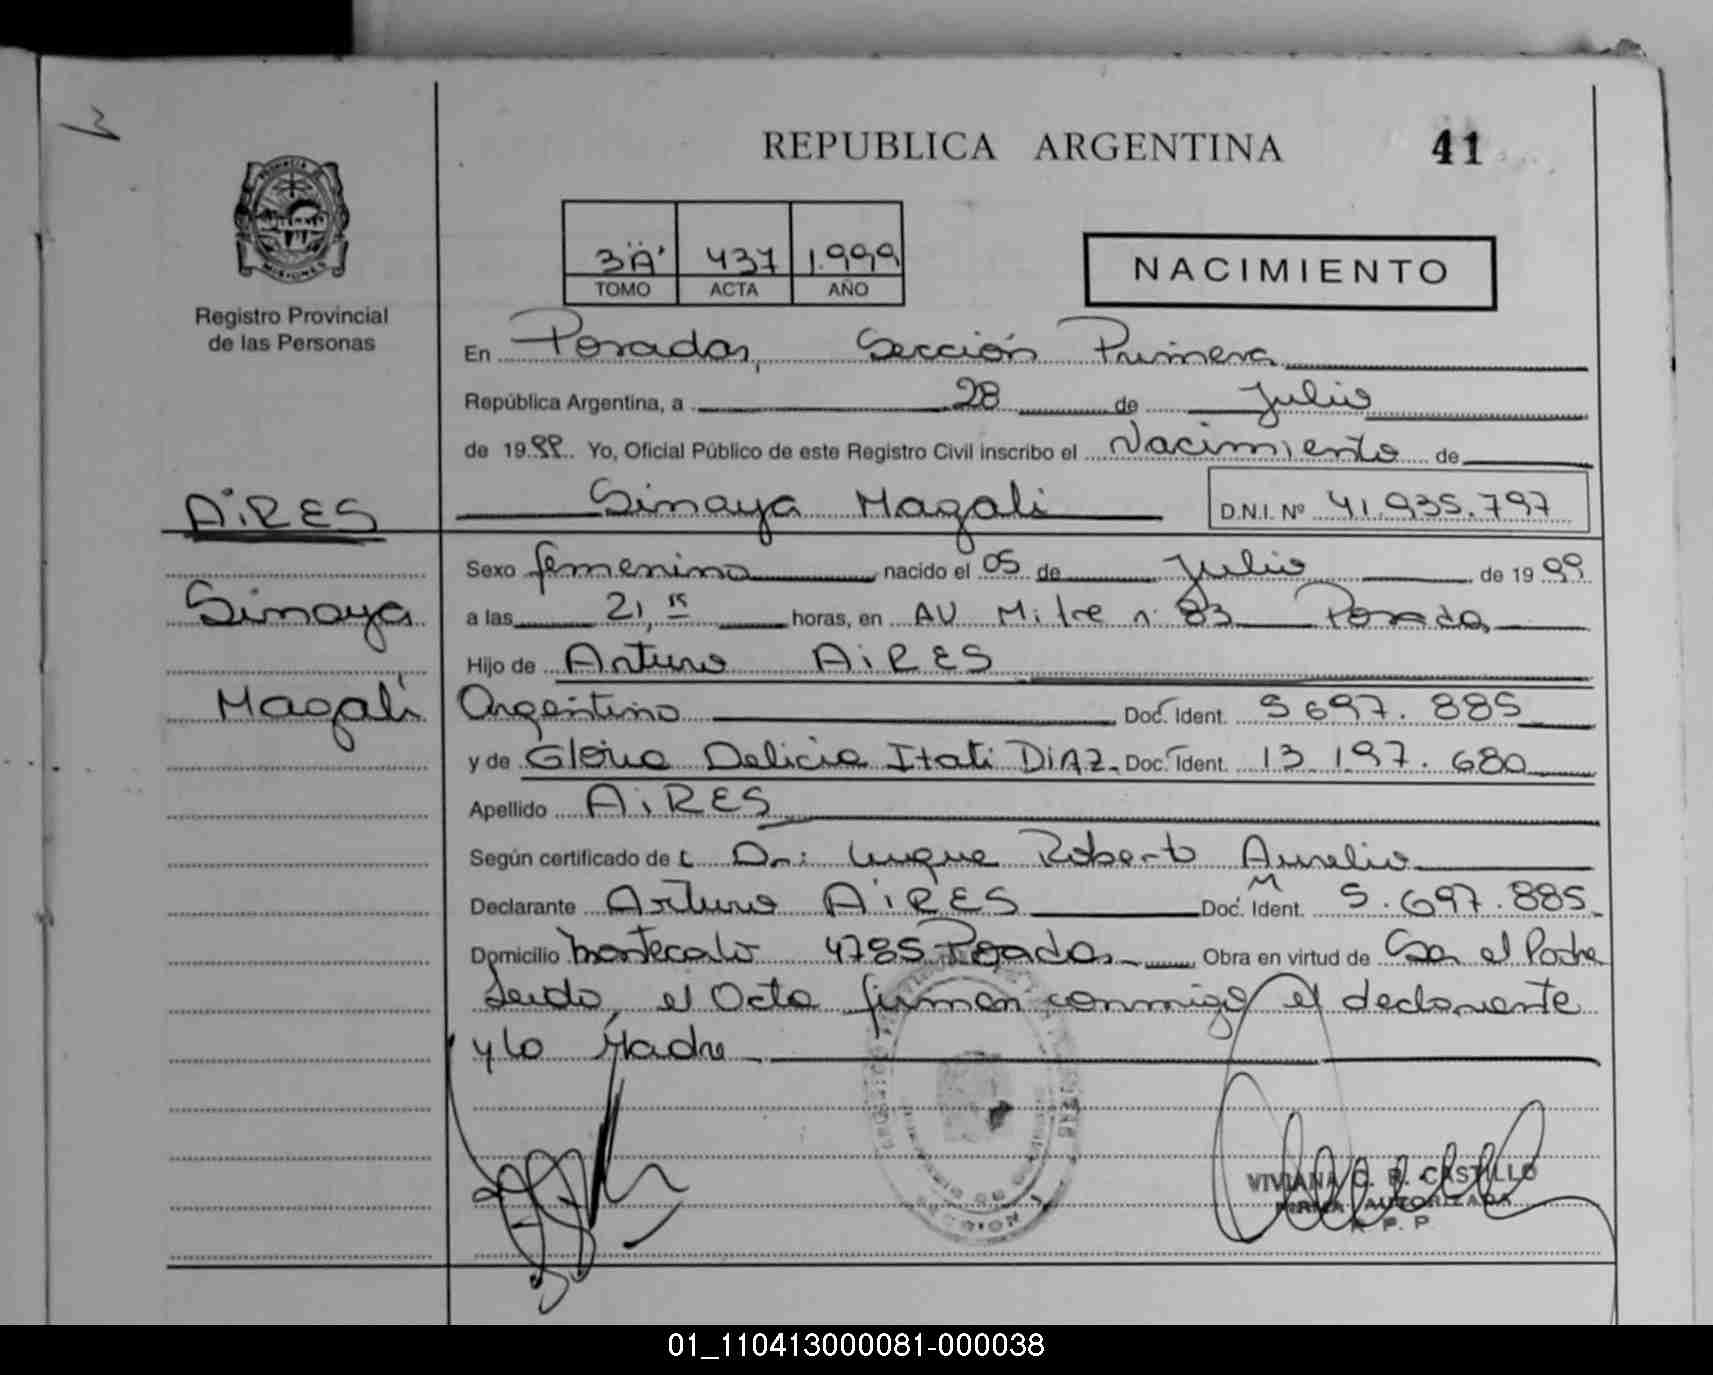 REPUBLICA ARGENTINA
41
PROVINCIA DE
MISIONES
Registro Provincial
de las Personas
3"A" 437 1.999
TOMO ACTA AÑO
NACIMIENTO
En Posadas, Sección Primera
República Argentina, a 28 de Julio
de 1999. Yo, Oficial Público de este Registro Civil inscribo el Nacimiento de
AiRES
Sinaya Magali
D.N.I. Nº 41.935.797
Sexo femenino nacido el 05 de Julio de 1999
Sinaya
a las 21,15 horas, en AV Mitre nº 83 Posadas
Hijo de Arturo AiRES
Magali
Argentino Doc. Ident. 5697.885
y de Gloria Delicia Itati DiAZ Doc. Ident. 13 197.680
Apellido AiRES
Según certificado de: Dr: Luque Roberto Aurelio
Declarante Arturo AiRES Doc. Ident. M 5.697.885
Domicilio 4785 Posadas Obra en virtud de Ser el Padre
Leido, el Acta firman conmigo el declarante
y la Madre
SECCION 1
VIVIANA C. R. CASTILLO
FIRMA AUTORIZADA
R. P. P
01_110413000081-000038